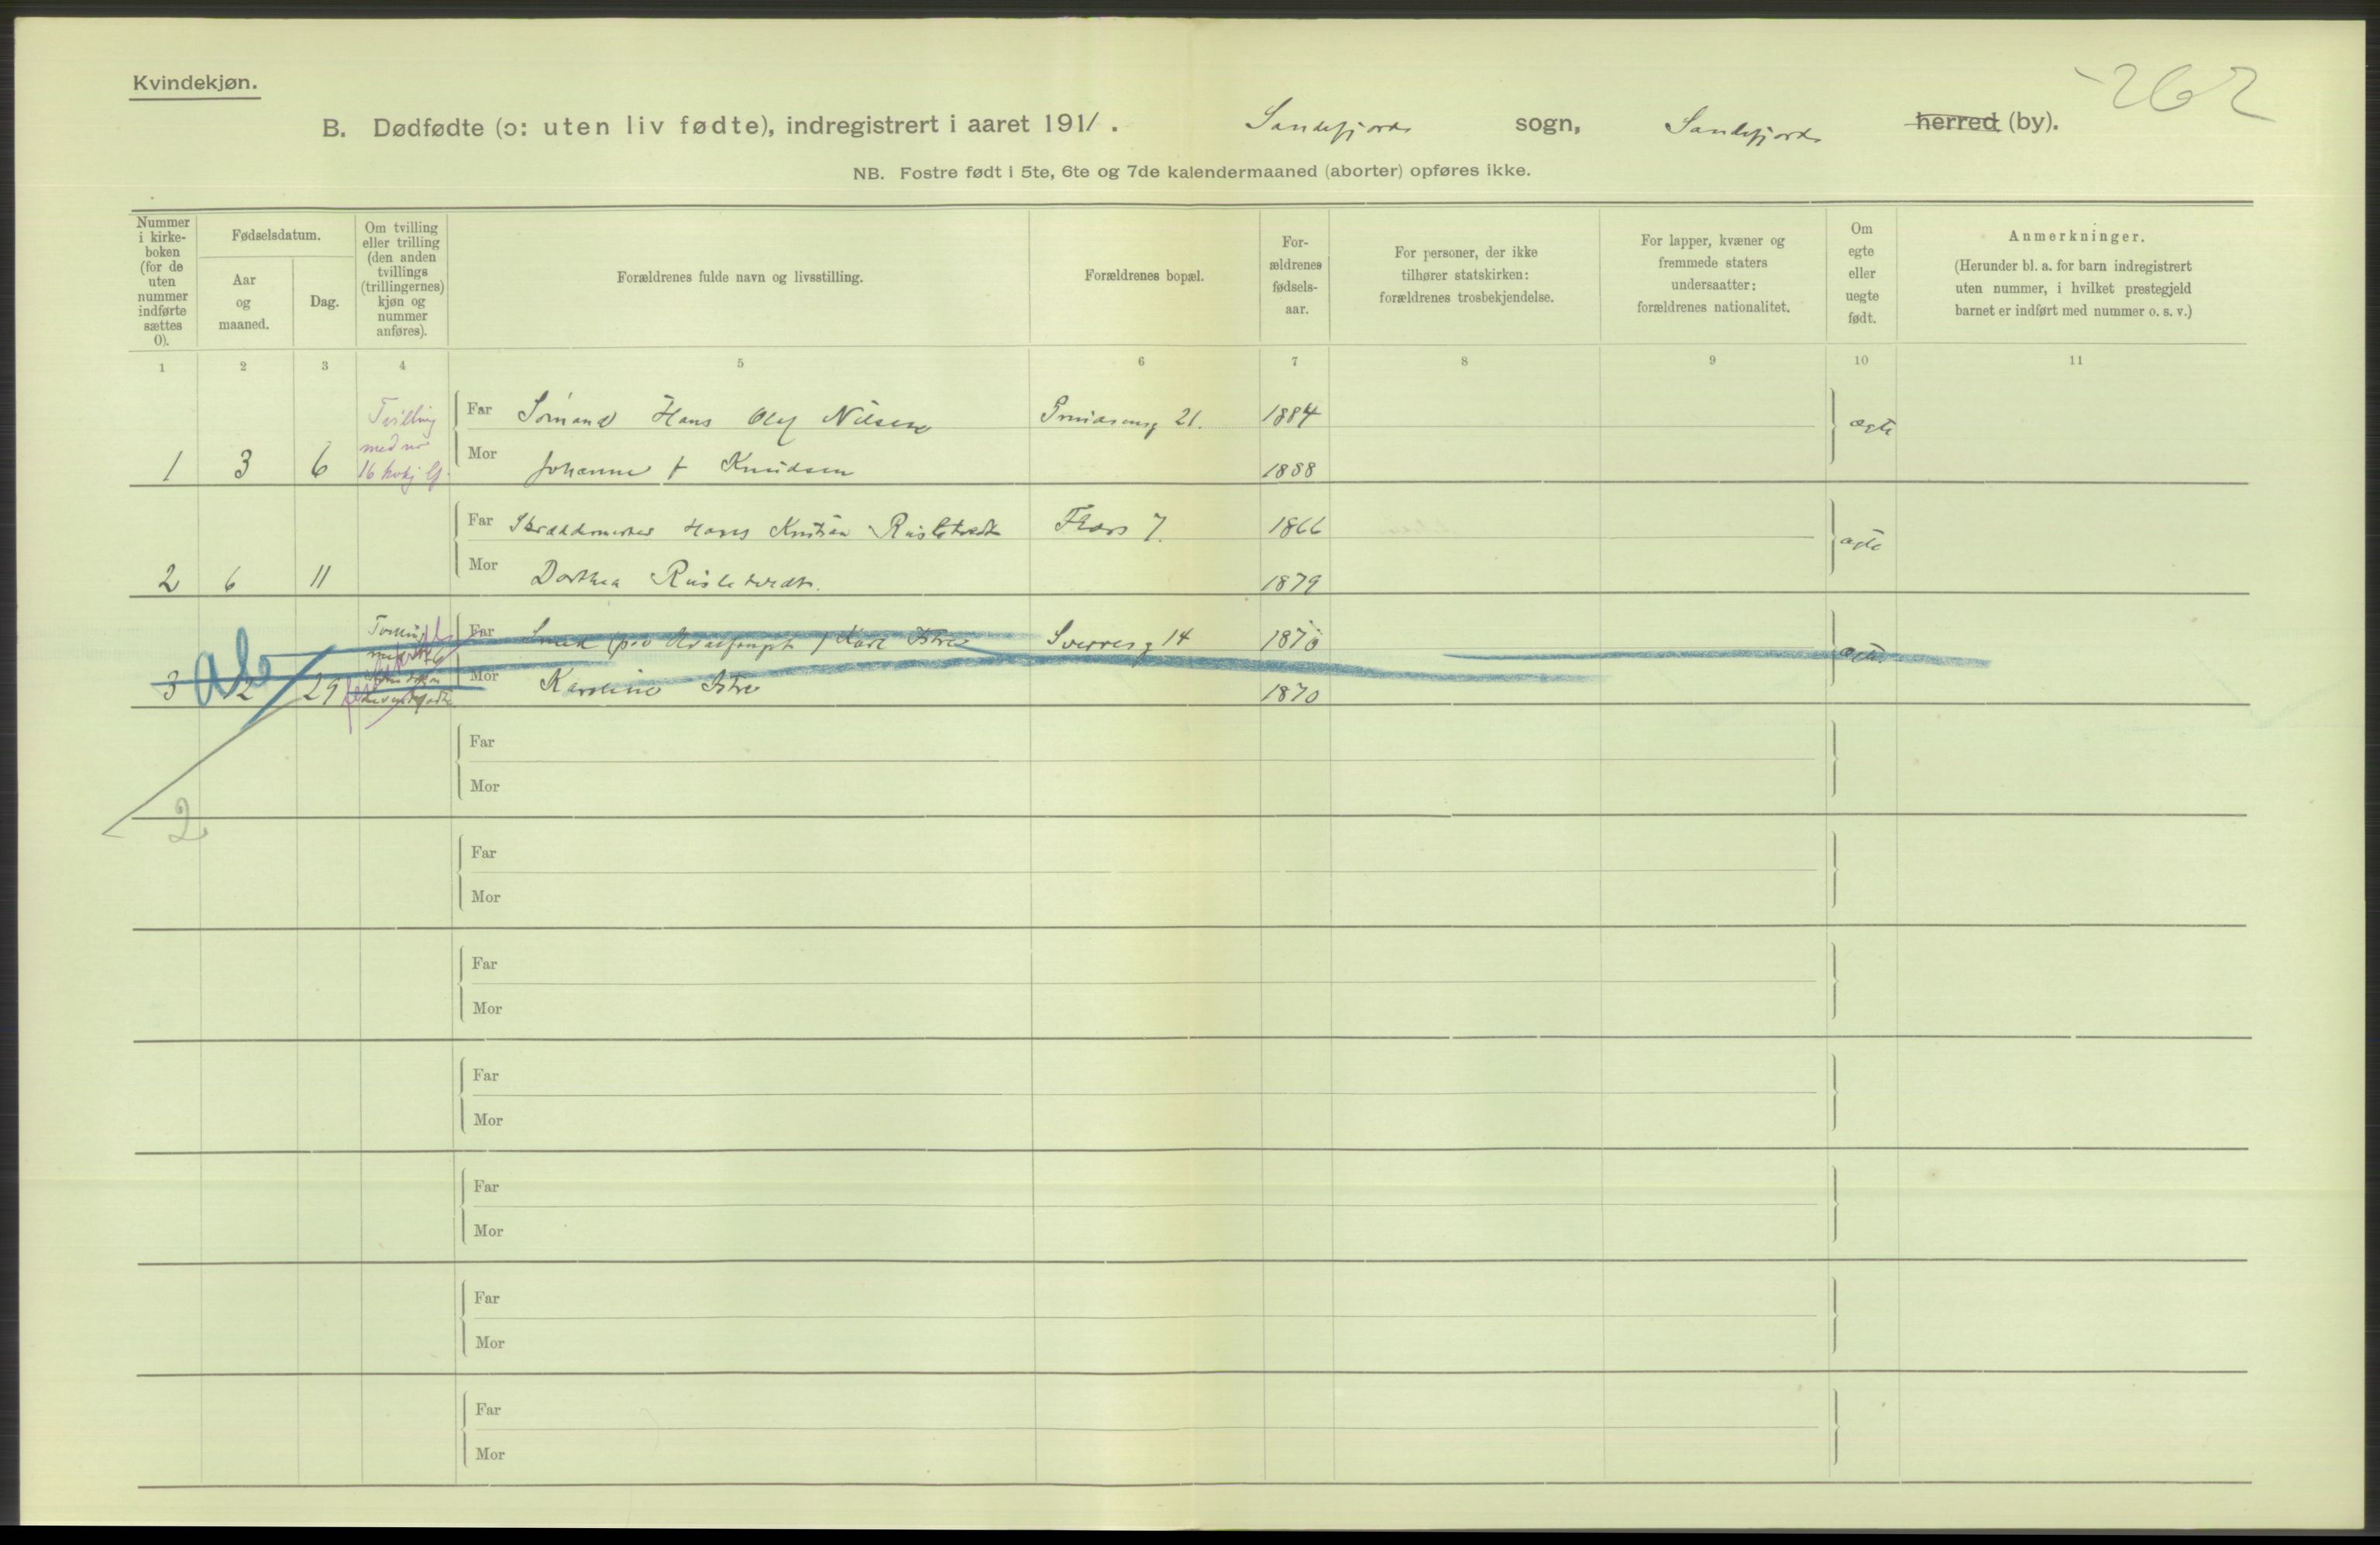 Kvindekjøn.
262
B. Dødfødte (ɔ: uten liv fødte), indregistrert i aaret 1911. Sandefjords sogn, Sandefjords herred (by).
NB. Fostre født i 5te, 6te og 7de kalendermaaned (aborter) opføres ikke.
Nummer
i kirke-
boken
(for de
uten
nummer
indførte
sættes
0).
Fødselsdatum.
Aar
og
maaned.
Dag.
Om tvilling
eller trilling
(den anden
tvillings
(trillingernes)
kjøn og
nummer
anføres).
Forældrenes fulde navn og livsstilling.
Forældrenes bopæl.
For-
ældrenes
fødsels-
aar.
For personer, der ikke
tilhører statskirken:
forældrenes trosbekjendelse.
For lapper, kvæner og
fremmede staters
undersaatter:
forældrenes nationalitet.
Om
egte
eller
uegte
født.
Anmerkninger.
(Herunder bl. a. for barn indregistrert
uten nummer, i hvilket prestegjeld
barnet er indført med nummer o. s. v.)
1 2 3 4 5 6 7 8 9 10 11
Tvilling
med no
16
Far Sømand Hans Olaf Nilsen 21. 1884 ægte
1 3 6 Mor Johanne f Knudsen 1888
Far Hans Kristian Thors 7. 1866 ægte
2 6 11 Mor Dorthea 1879
Far Karl Sverresg 14 1870 ægte
3 12 29 Mor Karoline 1870
Far
Mor
2
Far
Mor
Far
Mor
Far
Mor
Far
Mor
Far
Mor
Far
Mor